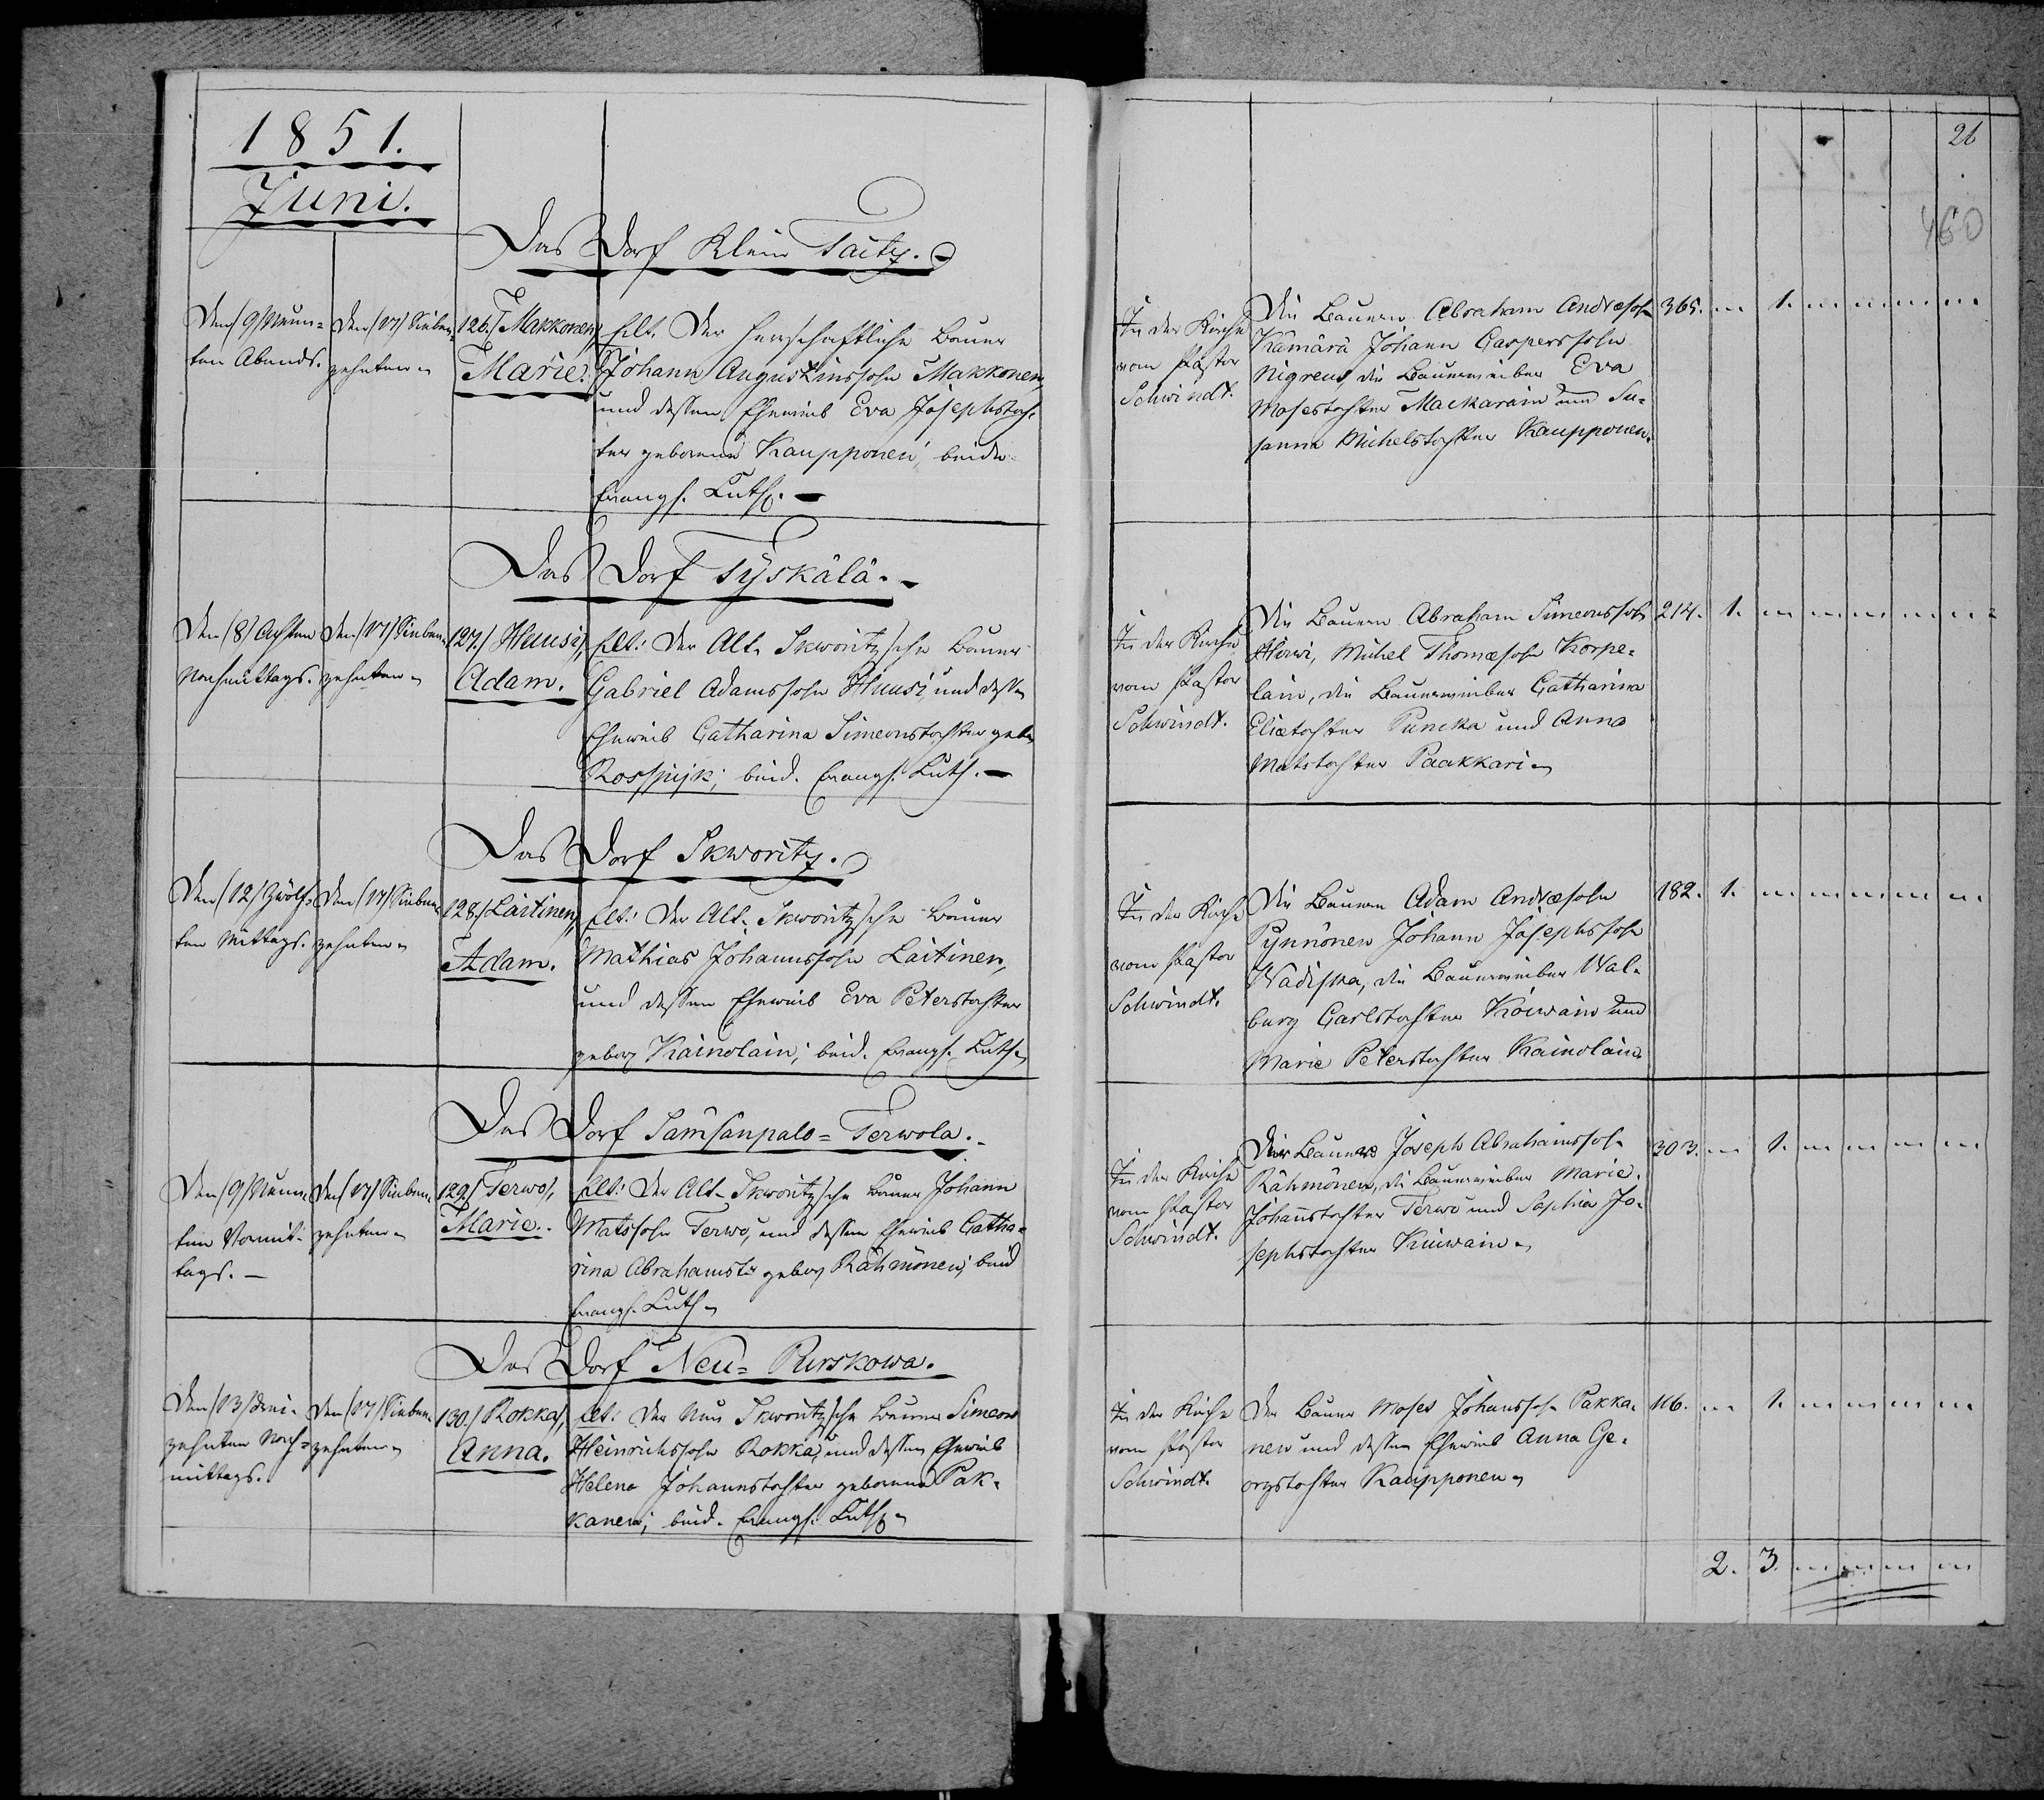 1851.
Juni.
Das Dorf Klein Taitz.
Den (9) Neun=
ten Abends.
den (17) Sieben=
zehnten
126. Makkonen,
Marie.
Elt. Der herrschaftliche Bauer
Johann Augustinssohn Makkonen,
und dessen Eheweib Eva Josephstoch=
ter geborene Kaupponen, beide
Evangs. Luths.
In der Kirche
vom Pastor
Schwindt.
Die Bauern Abraham Andreæsohn
Kämärä Johann Casperssohn
Nigreus, die Bauerweiber Eva
Mosestochter Mackarain und Su=
sanna Michelstochter Kaupponen.
365. 1.
Das Dorf Tyskälä.
Den (8) Achten
Nachmittags.
den (17) Sieben=
zehnten
127. Huusi,
Adam.
Elt: Der Alt. Skworitzsche Bauer
Gabriel Adamssohn Huusi, und dessen
Eheweib Catharina Simeonstochter geb.
Rosspijk; beid. Evangs. Luths.
In der Kirche
vom Pastor
Schwindt.
Die Bauern Abraham Simeonssohn
Hirwi, Michel Thomæsohn Korpe=
lain, die Bauerweiber Catharina
Eliætochter Puncka und Anna
Matstochter Paakkari
214. 1.
Das Dorf Skworitz.
Den (12) Zwölf=
ten Mittags.
den (17) Sieben=
zehnten
128. Laitinen,
Adam.
Elt: Der Alt. Skworitzsche Bauer
Mathias Johannssohn Laitinen,
und dessen Eheweib Eva Peterstochter
gebor Kainolain; beid. Evangs. Luths.
In der Kirche
vom Pastor
Schwindt.
Die Bauern Adam Andreæsohn
Pynnönen Johann Josephssohn
Wadiska, die Bauerweiber Wal=
burg Carlstochter Koiwain und
Marie Peterstochter Kainolain
182. 1.
Das Dorf Samsanpalo=Terwola.
Den (9) Neun=
ten Vormit=
tags.
den (17) Sieben=
zehnten
129. Terwo,
Marie.
Elt: Der Alt. Skworitzsche Bauer Johann
Matssohn Terwo, und dessen Eheweib Catha=
rina Abrahamstr gebor Rähmönen; beid
Evangs. Luths.
In der Kirche
vom Pastor
Schwindt.
Der Bauer Joseph Abrahamssohn
Rähmönen, die Bauerweiber Marie
Johannstochter Terwo und Sophia Jo=
sephstochter Kiuwain
303. 1.
Das Dorf Neu=Purskowa.
Den (13) drei=
zehnten Nach=
mittags.
den (17) Sieben=
zehnten
130. Rokka,
Anna.
Elt: Der Neu Skworitzsche Bauer Simeon
Heinrichssohn Rokka, und dessen Eheweib
Helena Johannstochter geborene Pak=
kanen; beid. Evangs. Luths.
In der Kirche
vom Pastor
Schwindt.
Der Bauer Moses Johannssohn Pakka=
nen und dessen Eheweib Anna Ge=
orgstochter Kaupponen
116. 1.
2. 3.
26
460